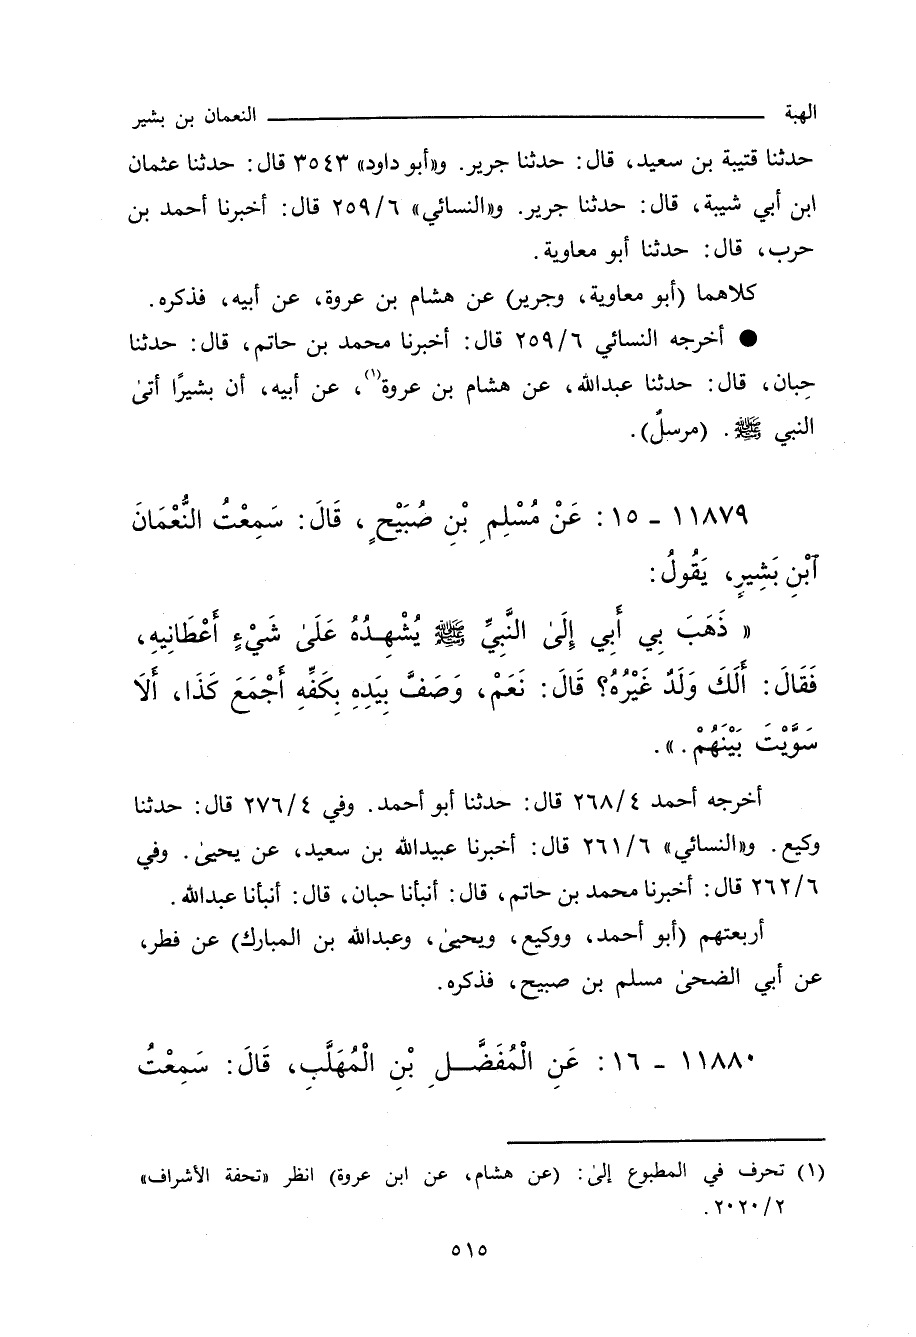 الهبة ـــــــــــــــــــــــ النعمان بن بشير
حدثنا قتيبة بن سعيد، قال: حدثنا جرير. و«أبو داود» ٣٥٤٣ قال: حدثنا عثمان
ابن أبي شيبة، قال: حدثنا جرير. و«النسائي» ٢٥٩/٦ قال: أخبرنا أحمد بن
حرب، قال: حدثنا أبو معاوية.
كلاهما (أبو معاوية، وجرير) عن هشام بن عروة، عن أبيه، فذكره.
● أخرجه النسائي ٢٥٩/٦ قال: أخبرنا محمد بن حاتم، قال: حدثنا
حِبان، قال: حدثنا عبدالله، عن هشام بن عروة(١)، عن أبيه، أن بشيرًا أتىٰ
النبي ﷺ. (مرسلٌ).
١١٨٧٩ ـ ١٥: عَنْ مُسْلِمِ بْنِ صُبَيْحٍ، قَالَ: سَمِعْتُ النُّعْمَانَ
ٱبْنِ بَشِيرٍ، يَقُولُ:
« ذَهَبَ بِي أَبِي إِلَىٰ النَّبِيِّ ﷺ يُشْهِدُهُ عَلَىٰ شَيْءٍ أَعْطَانِيهِ،
فَقَالَ: أَلَكَ وَلَدٌ غَيْرُهُ؟ قَالَ: نَعَمْ، وَصَفَّ بِيَدِهِ بِكَفِّهِ أَجْمَعَ كَذَا، أَلَا
سَوَّيْتَ بَيْنَهُمْ.».
أخرجه أحمد ٢٦٨/٤ قال: حدثنا أبو أحمد. وفي ٢٧٦/٤ قال: حدثنا
وكيع. و«النسائي» ٢٦١/٦ قال: أخبرنا عبيدالله بن سعيد، عن يحيىٰ. وفي
٢٦٢/٦ قال: أخبرنا محمد بن حاتم، قال: أنبأنا حبان، قال: أنبأنا عبدالله.
أربعتهم (أبو أحمد، ووكيع، ويحيىٰ، وعبدالله بن المبارك) عن فطر،
عن أبي الضحىٰ مسلم بن صبيح، فذكره.
١١٨٨٠ ـ ١٦: عَنِ الْمُفَضَّلِ بْنِ الْمُهَلَّبِ، قَالَ: سَمِعْتُ
(١) تحرف في المطبوع إلىٰ: (عن هشام، عن ابن عروة) انظر «تحفة الأشراف»
٢٠٢٠/٢.
٥١٥